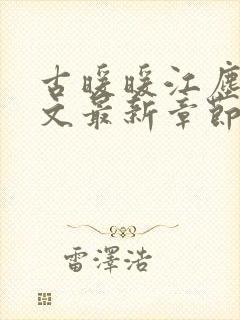 古暖暖江塵
文最新章節
雷澤浩